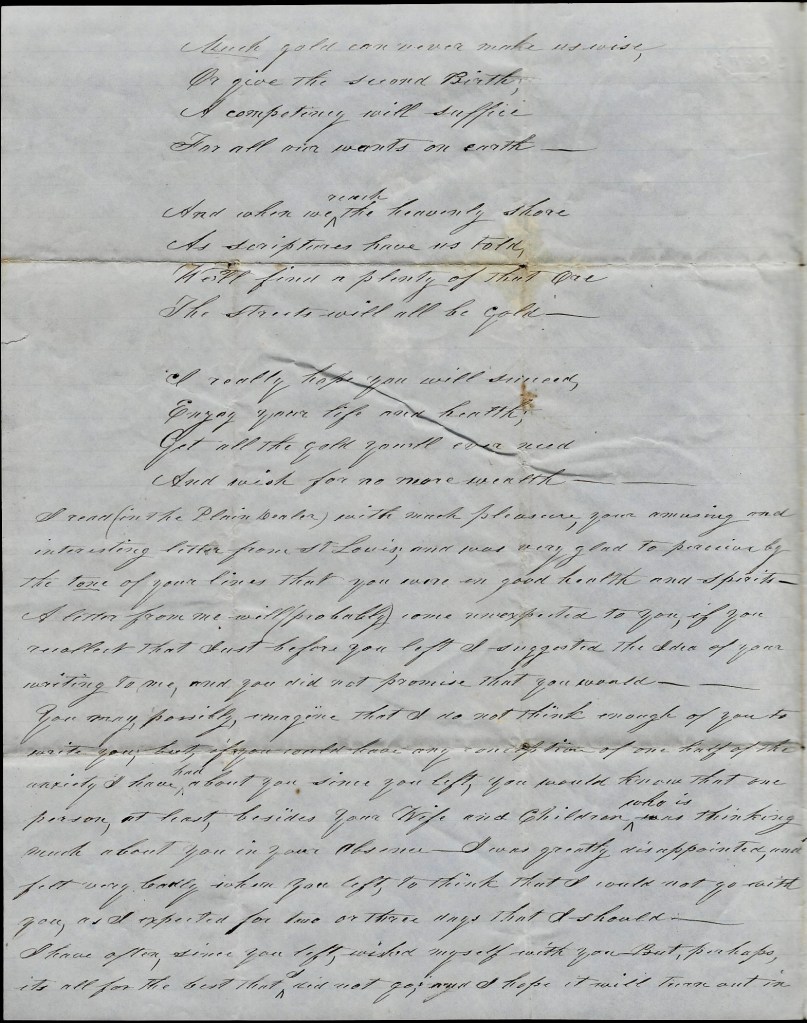 Much gold can never make us wise,
Or give the second Birth;
A competency will suffice
For all our wants on earth —
reach
And when we ^ the heavenly shore
As scriptures have us told,
We'll find a plenty of that Ore
The streets will all be gold —
I really hope you will succeed,
Enjoy your life and health;
Get all the gold you'll ever need
And wish for no more wealth —
I read (in the Plain Dealer) with much pleasure, your amusing and
interesting letter from St Louis; and was very glad to perceive by
the tone of your lines that you were in good health and spirits —
A letter from me will (probably) come unexpected to you, if you
recollect that Just before you left I suggested the Idea of your
writing to me, and you did not promise that you would —
You may, possibly, imagine that I do not think enough of you to
write you, but, if you could have any conception of one half of the
had
anxiety I have ^ about you since you left, you would know that one
who is
person, at least, besides your Wife and Children ^ was thinking
much about you in your absence — I was greatly disappointed, and
felt very badly when you left, to think that I could not go with
you, as I expected for two or three days that I should —
I have often, since you left, wished myself with you — But, perhaps,
I
its all for the best that ^ did not go; and I hope it will turn out in